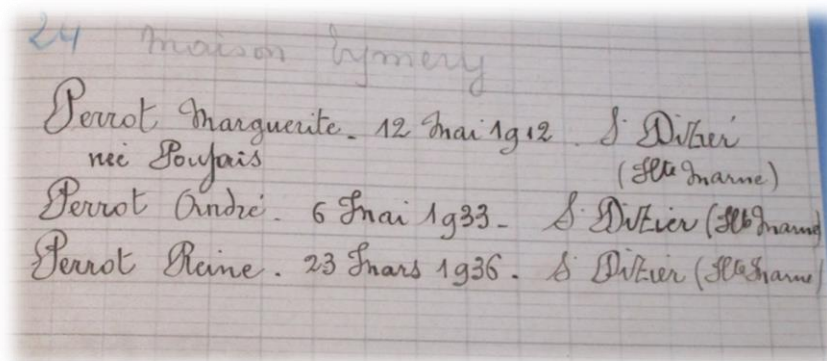 24 Maison Eymery
Perrot Marguerite. 12 Mai 1912. St Dizier
née Poujais (Hte Marne)
Perrot André. 6 Mai 1933 - St Dizier (Hte Marne)
Perrot Reine. 23 Mars 1936. St Dizier (Hte Marne)